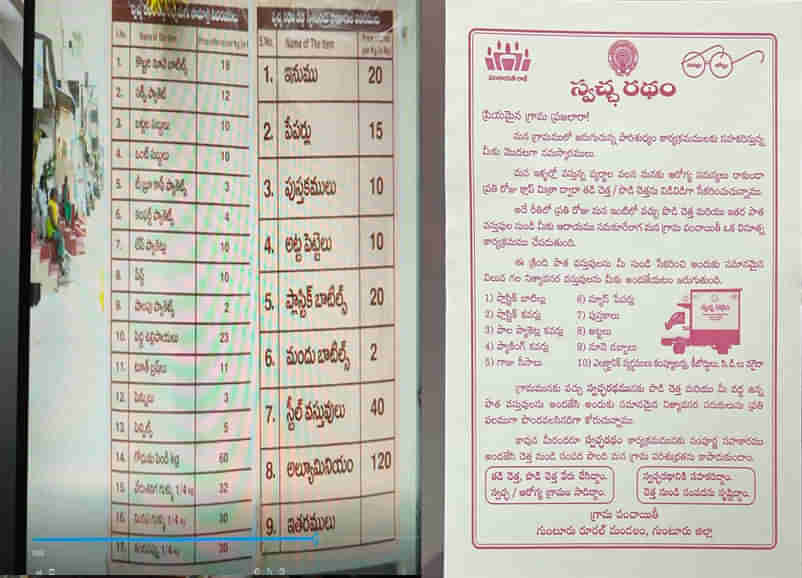 S.No. Name of The Item
1. కొబ్బరి నూనె బాటిల్స్ 18
2. సర్ఫ్ ప్యాకెట్ 12
3. బట్టల సబ్బులు 10
4. ఒంటి సబ్బులు 10
5. 3
6. కంఫర్ట్ ప్యాకెట్స్ 4
7. 10
8. పేస్ట్ 10
9. పాలపు ప్యాకెట్స్ 2
10. పెద్ద ఉల్లిపాయలు 23
11. టూత్ బ్రష్‌లు 11
12. పెన్నులు 3
13. పెన్సిల్స్ 5
14. గోధుమ పిండి kg 60
15. 1/4 kg 32
16. 1/4 kg 30
17. 1/4 kg 30
S.No. Name of The Item
1. ఇనుము 20
2. పేపర్లు 15
3. పుస్తకములు 10
4. అట్ట పెట్టెలు 10
5. ప్లాస్టిక్ బాటిల్స్ 20
6. మందు బాటిల్స్ 2
7. స్టీల్ వస్తువులు 40
8. అల్యూమినియం 120
9. ఇతరములు
స్వచ్ఛ రథం
ప్రియమైన గ్రామ ప్రజలారా!
మన గ్రామములో జరుగుచున్న పారిశుధ్యం కార్యక్రమములకు సహకరిస్తున్న
మీకు మొదటగా నమస్కారములు.
మన ఇళ్ళల్లో వస్తున్న వ్యర్థాల వలన మనకు ఆరోగ్య సమస్యలు రాకుండా
ప్రతి రోజు క్లాప్ మిత్రా ద్వారా తడి చెత్త / పొడి చెత్తను విడివిడిగా సేకరించుచున్నాము.
అదే రీతిలో ప్రతి రోజు మన ఇంటిలో వచ్చు పొడి చెత్త మరియు ఇతర పాత
వస్తువుల నుండి మీకు ఆదాయము సమకూరేలాగ మన గ్రామ పంచాయితీ ఒక వినూత్న
కార్యక్రమము చేపడుతుంది.
ఈ క్రింది పాత వస్తువులను మీ నుండి సేకరించి అందుకు సమానమైన
విలువ గల నిత్యావసర వస్తువులను మీకు అందజేయటం జరుగుతుంది.
1) ప్లాస్టిక్ బాటిల్లు 6) న్యూస్ పేపర్లు
2) ప్లాస్టిక్ కవర్లు 7) పుస్తకాలు
3) పాల ప్యాకెట్లు కవర్లు 8) అట్టలు
4) ప్యాకింగ్ కవర్లు 9) నూనె డబ్బాలు
5) గాజు సీసాలు 10) ఎలక్ట్రానిక్ వ్యర్థములు కంప్యూటర్లు, కీబోర్డులు, సి.డి.లు వగైరా
స్వచ్ఛ రథం
గ్రామమునకు వచ్చు స్వచ్ఛరథమునకు పొడి చెత్త మరియు మీ వద్ద ఉన్న
పాత వస్తువులను అందజేసి అందుకు సమానమైన నిత్యావసర సరుకులను ప్రతి
ఫలముగా పొందవలసినదిగా కోరుచున్నాము.
కావున మీరందరూ స్వచ్ఛరథం కార్యక్రమమునకు సంపూర్ణ సహకారము
అందజేసి చెత్త నుండి సంపద పొంది మన గ్రామ పరిశుభ్రతను కాపాడుకుందాం.
తడి చెత్త, పొడి చెత్త వేరు చేసేద్దాం. స్వచ్ఛరథానికి సహకరిద్దాం.
స్వచ్ఛ / ఆరోగ్య గ్రామం సాధిద్దాం. చెత్త నుండి సంపదను సృష్టిద్దాం.
గ్రామ పంచాయితీ
గుంటూరు రూరల్ మండలం, గుంటూరు జిల్లా